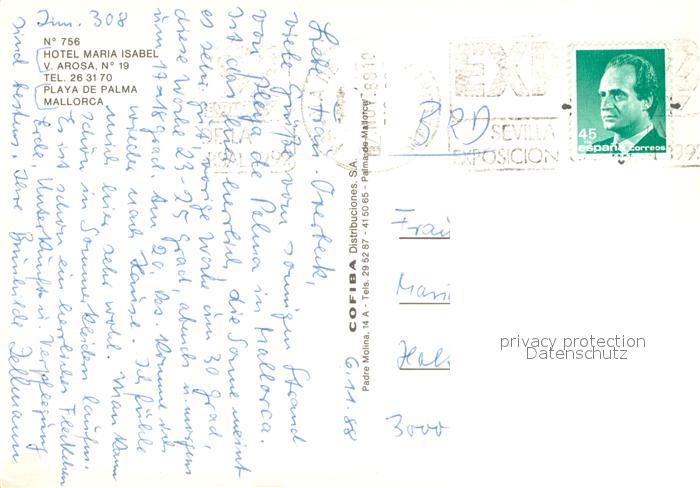 Zim. 308
N° 756
HOTEL MARIA ISABEL
V. AROSA, N° 19
TEL. 26 31 70
PLAYA DE PALMA
MALLORCA
6.11.88
Liebe Frau Overbeck,
viele Grüße vom sonnigen Strand
von Playa de Palma in Mallorca.
Ist das hier herrlich, die Sonne meint
es sehr gut, vorige Woche um 30 Grad,
diese Woche 23-25 Grad, abends u. morgens
um 17-18 Grad. Am 20. Dez. komme ich
wieder nach Hause. Ich fühle
mich hier sehr wohl. Man kann
schön in Sommerkleidern laufen.
Es ist schon ein herrliches Fleckchen
Erde. Unterkunft u. Verpflegung
sind bestens. Ihre Brunhilde
COFIBA Distribuciones, S.A.
Padre Molina, 14 A - Tels: 29 52 87 - 41 50 65 - Palma de Mallorca
BRD
EXP
SEVILLA
EXPOSICION
45
españa correos
Frau
3000
privacy protection
Datenschutz